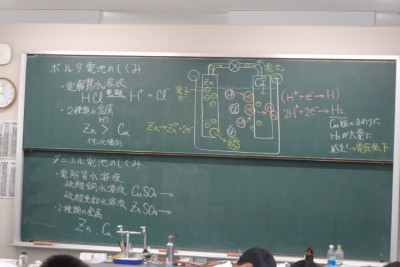 ボルタ電池のしくみ
・電解質水溶液
HCl 電離→ H⁺ + Cl⁻
・2種類の金属
Zn > Cu
イオン化傾向
Zn→Zn²⁺+2e⁻
Zn
Cu
電子
電流
(H⁺+e⁻→H)
2H⁺+2e⁻→H₂
Cu板のまわりに
H₂が大量に
発生！→電圧低下
ダニエル電池のしくみ
・電解質水溶液
硫酸銅水溶液 CuSO₄→
硫酸亜鉛水溶液 ZnSO₄→
・2種類の金属
Zn Cu